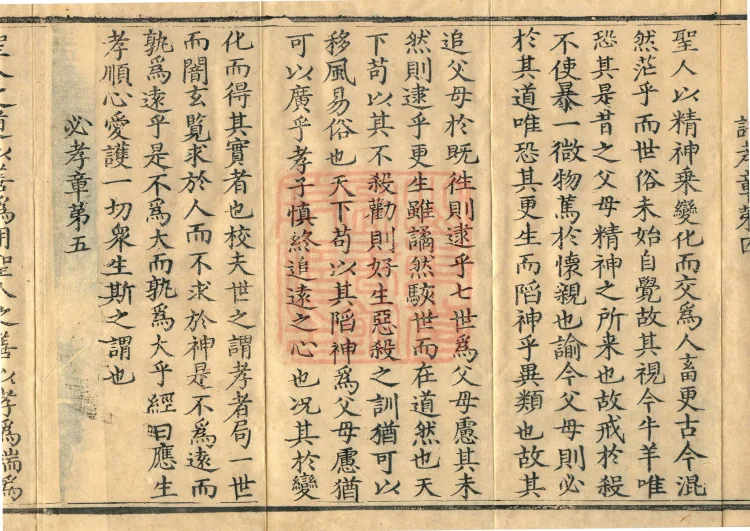 評孝章第四
聖人以精神乘變化而交爲人畜更古今混
然茫乎而世俗未始自覺故其視今牛羊唯
恐其是昔之父母精神之所来也故戒於殺
不使暴一微物篤於懷親也諭今父母則必
於其道唯恐其更生而陷神乎異類也故其
追父母於既徃則逮乎七世爲父母慮其未
然則逮乎更生雖譎然駭世而在道然也天
下苟以其不殺勸則好生惡殺之訓猶可以
移風易俗也天下苟以其陷神爲父母慮猶
可以廣乎孝子慎終追遠之心也况其於變
化而得其實者也校夫世之謂孝者局一世
而闇玄覧求於人而不求於神是不爲遠而
孰爲遠乎是不爲大而孰爲大乎經曰應生
孝順心愛護一切衆生斯之謂也
必孝章第五
聖人之道以善爲用聖人之善以孝爲端爲